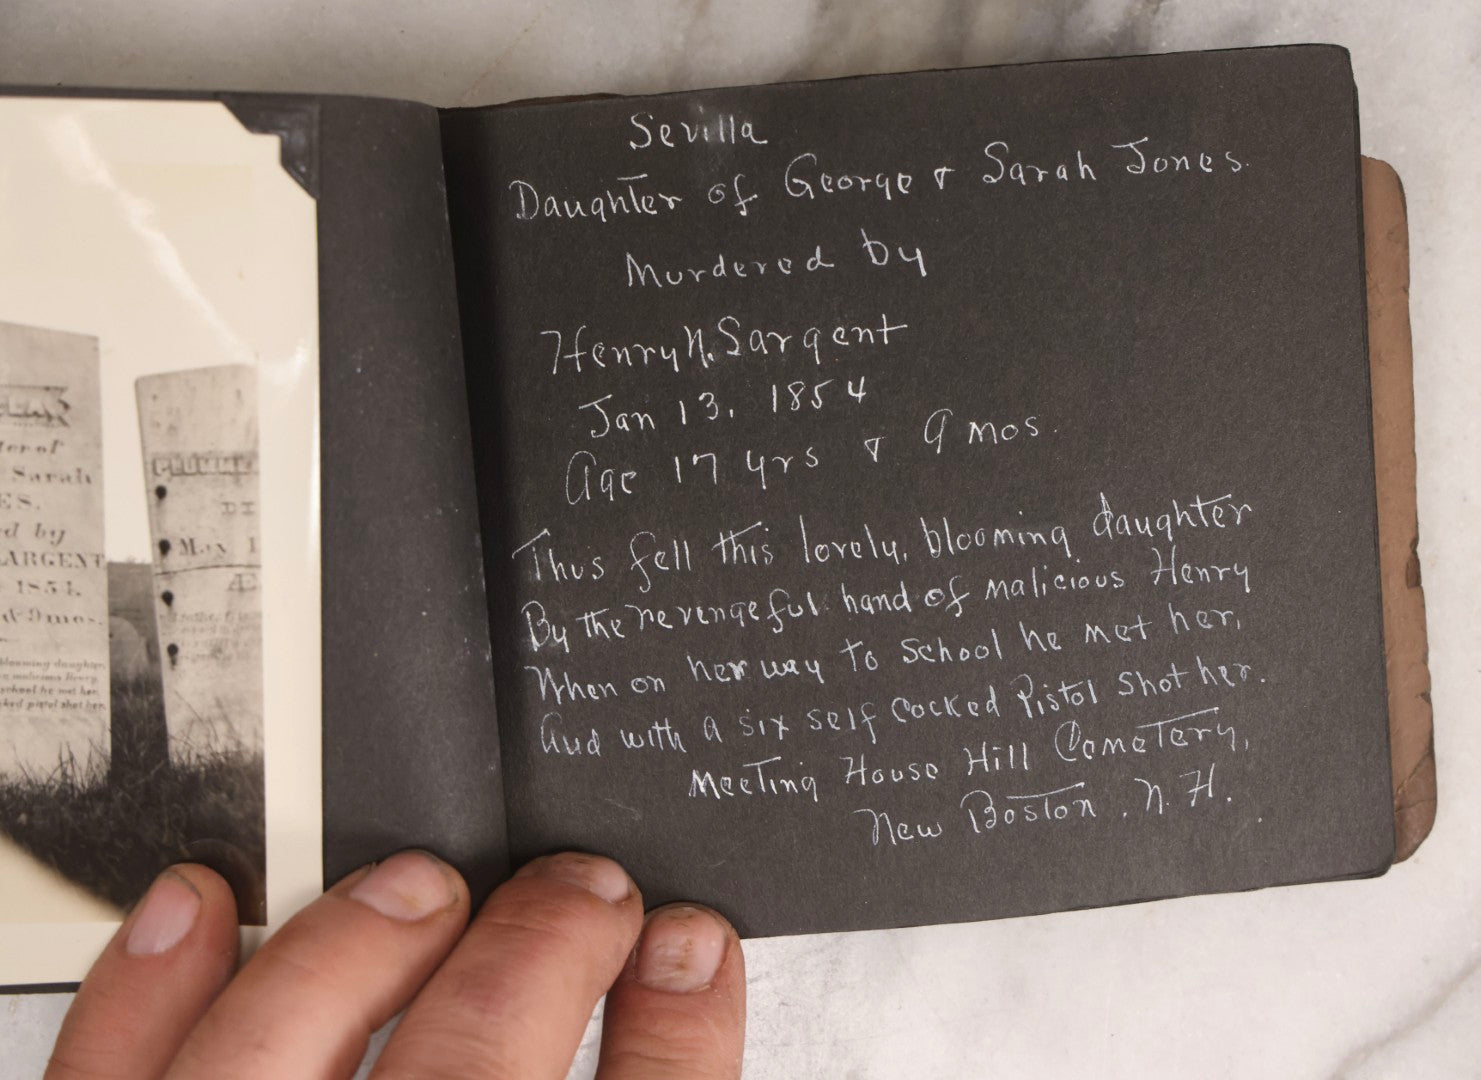 ter of
Sarah
ES.
d by
ARGENT
1854.
& 9 mos.
blooming daughter,
malicious Henry,
school he met her,
ked pistol shot her.
PLUMME
DI
May 1
Æ
Sevilla
Daughter of George & Sarah Jones.
Murdered by
Henry N. Sargent
Jan 13, 1854
Age 17 yrs & 9 mos.
Thus fell this lovely, blooming daughter
By the revengeful hand of malicious Henry
When on her way to School he met her,
And with a six self cocked Pistol Shot her.
Meeting House Hill Cemetery,
New Boston, N.H.